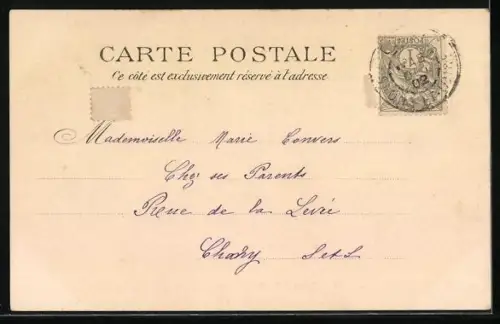 CARTE POSTALE
Ce côté est exclusivement réservé à l'adresse
02
Mademoiselle Marie Convers
Chez ses Parents
Rue de la Levée
S et L